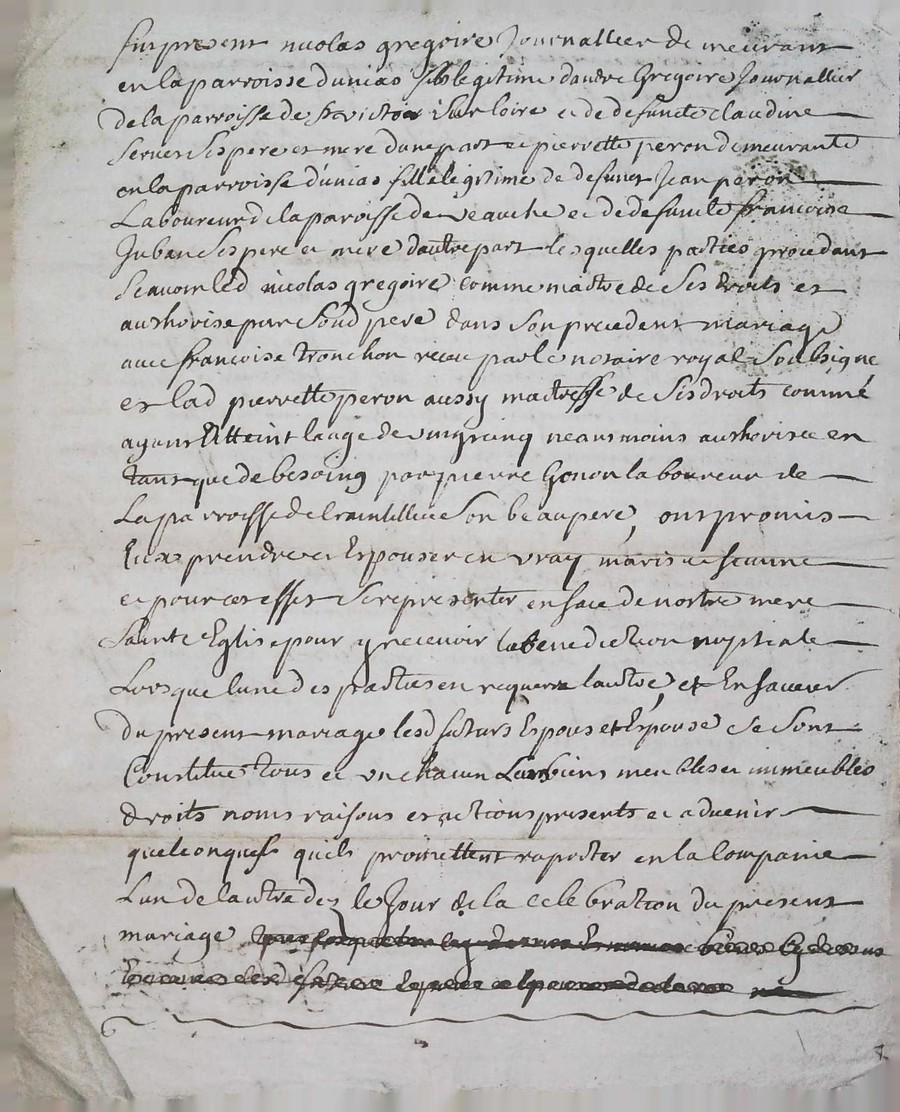 fut present nicolas gregoire Journallier demeurant
en la parroisse dunias fils legitime dautre Gregoire Journallier
de la parroisse de st victor sur loire et de defuncte claudine
ses pere et mere dune part et pierrette peron demeurante
en la parroisse dunias fille legitime de defunct Jean peron
Laboureur de la paroisse de veauche et de defuncte francoise
Juban ses pere et mere dautre part lesquelles parties procedant
scavoir led nicolas gregoire comme maitre de ses droits et
authorise par sond pere dans son precedent mariage
avec francoise tronchon receu par le notaire royal soubsigne
et lad pierrette peron aussy maitresse de ses droits comme
ayant atteint laage de vingt cinq neansmoins authorisee en
tant que de besoing par pierre Gonon laboureur de
La parroisse de son beaupere, ont promis
se prendre et Espouser en vray maris et femme
et pour cet effet se representer en face de nostre mere
Sainte Eglise pour y recevoir la benediction nuptiale
Lors que lune des parties en requerra lautre, et En faveur
du present mariage lesd futurs Espoux et Espouse se sont
Constitue tous et un chacun Leurs biens meubles et immeubles
droits noms raisons et actions presents et a advenir
quelconques quils promettent raporter en la Companie
Lun de lautre dez le Jour de la celebration du present
mariage